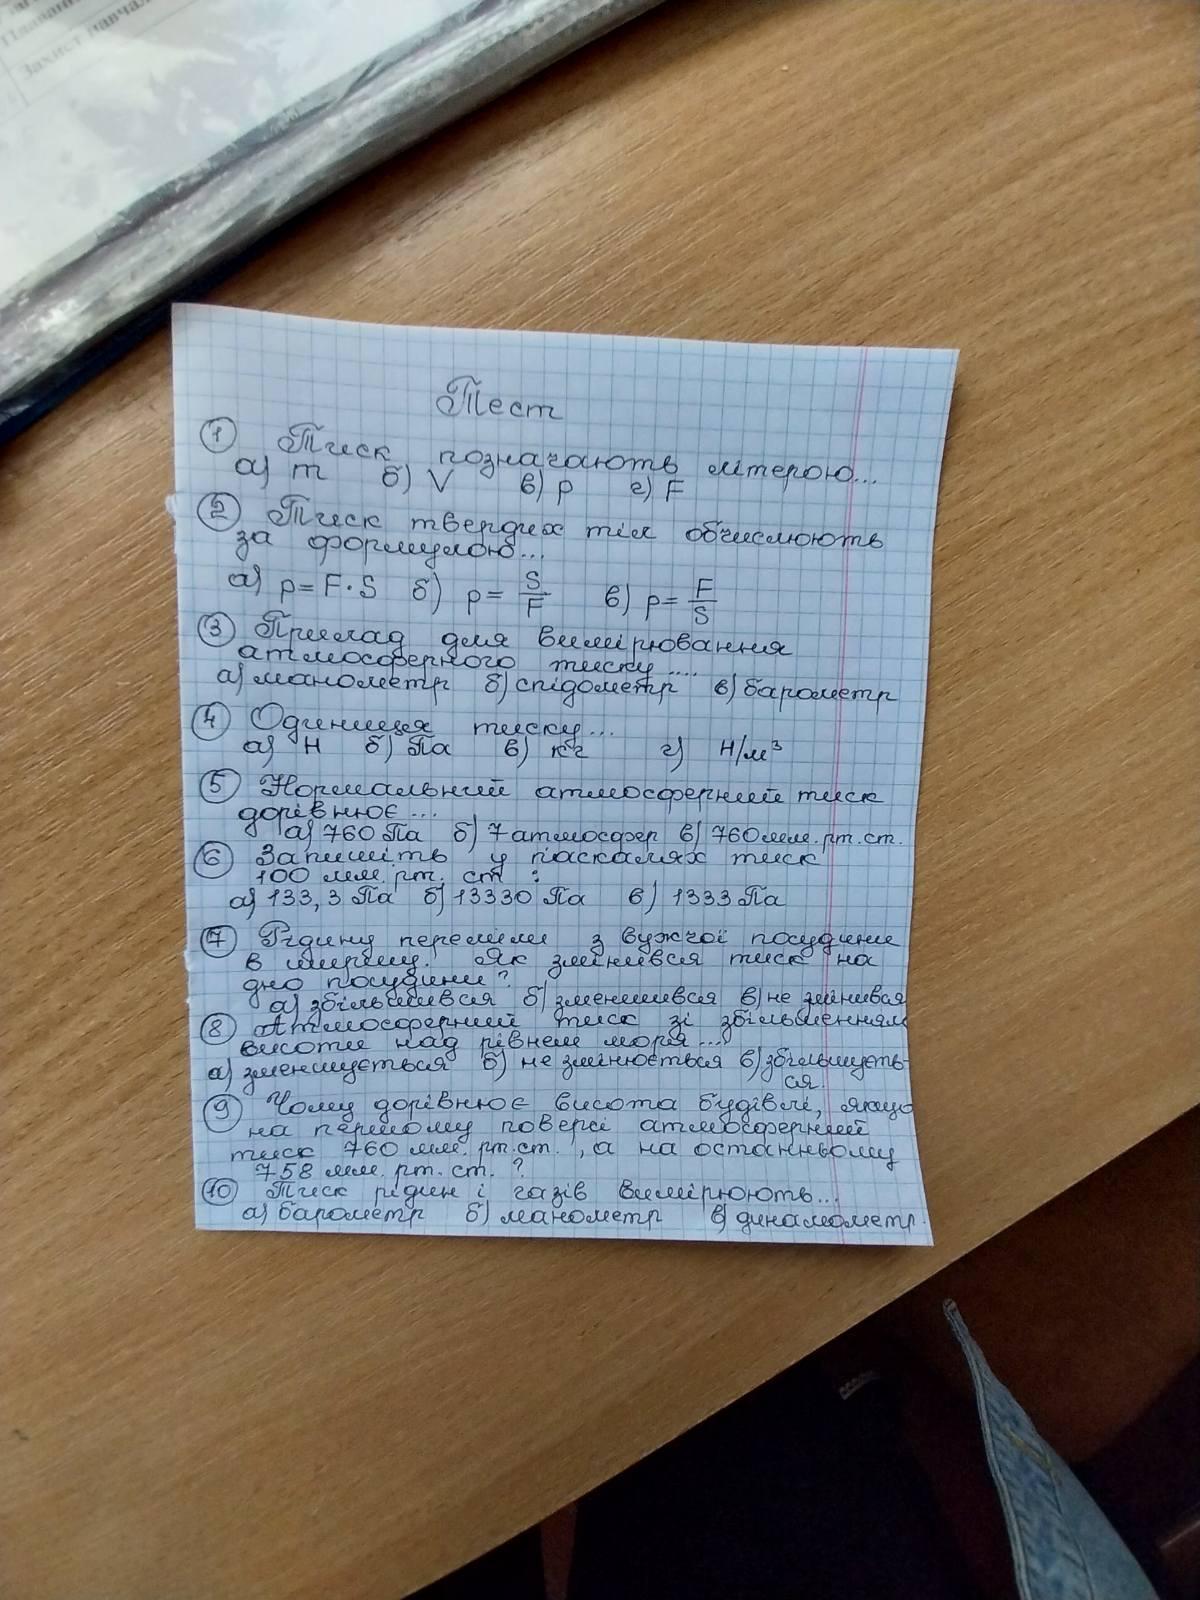 Плаван
Захист навчал
Тест
1 Тиск позначають літерою...
а) m б) V в) p г) F
2 Тиск твердих тіл обчислюють
за формулою...
а) p=F·S б) p= S/F в) p= F/S
3 Прилад для вимірювання
атмосферного тиску....
а) манометр б) спідометр в) барометр
4 Одиниця тиску...
а) Н б) Па в) кг г) Н/м³
5 Нормальний атмосферний тиск
дорівнює...
а) 760 Па б) 7 атмосфер в) 760 мм.рт.ст.
6 Запишіть у паскалях тиск
100 мм.рт. ст :
а) 133,3 Па б) 13330 Па в) 1333 Па
7 Рідину перелили з вужчої посудини
в ширшу. Як змінився тиск на
дно посудини?
а) збільшився б) зменшився в) не змінився
8 Атмосферний тиск зі збільшенням
висоти над рівнем моря...
а) зменшується б) не змінюється в) збільшуєть-
ся.
9 Чому дорівнює висота будівлі, якщо
на першому поверсі атмосферний
тиск 760 мм.рт.ст., а на останньому
758 мм.рт.ст.?
10 Тиск рідин і газів вимірюють...
а) барометр б) манометр в) динамометр.